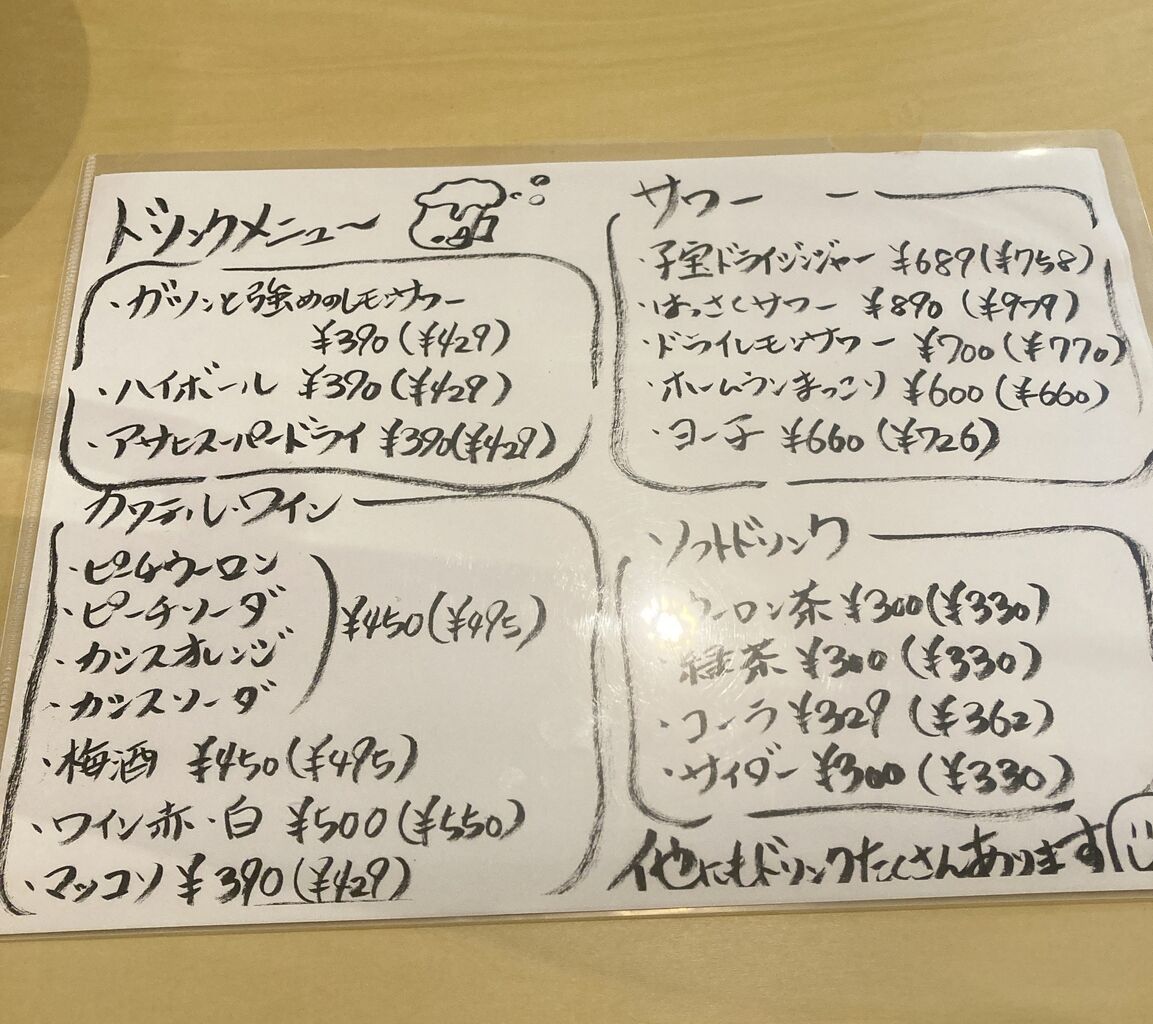 ドリンクメニュー
・ガツンと強めのレモンサワー
¥390(¥429)
・ハイボール ¥390(¥429)
・アサヒスーパードライ ¥390(¥429)
カクテル・ワイン
・ピーチウーロン
・ピーチソーダ
・カシスオレンジ
・カシスソーダ
¥450(¥495)
・梅酒 ¥450(¥495)
・ワイン赤・白 ¥500(¥550)
・マッコリ ¥390(¥429)
サワー
・子宝ドライジンジャー ¥689(¥758)
・はっさくサワー ¥890(¥979)
・ドライレモンサワー ¥700(¥770)
・ホームランまっこり ¥600(¥660)
・ヨー子 ¥660(¥726)
ソフトドリンク
・ウーロン茶 ¥300(¥330)
・緑茶 ¥300(¥330)
・コーラ ¥329(¥362)
・サイダー ¥300(¥330)
他にもドリンクたくさんあります